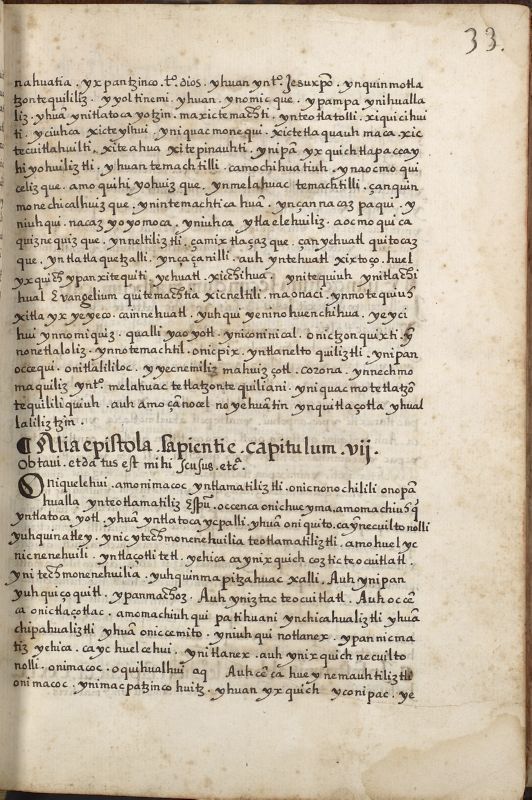 33.
nahuatia . yxpantzinco . tº. dios . yhuan yntº. Jesuxpõ . ynquinmotla
tzontequililiz . yyoltinemi . yhuan . ynomicque . ypampa ynihualla
liz . yhuã ynitlatocayotzin . maxictemachti . ynteotlatolli . xiquicihui
ti . yciuhca xicteylhui . yniquac monequi . xictetlaquauhmaca . xic
tecuitlahuilti . xiteahua xitepinauhti . ynipã yxquich tlapaccay
hiyohuiliztli . yhuan temachtilli . camo chihuatiuh . ynaocmo qui
celizque . amo quihiyohuizque . ynmelahuac temachtilli . çanquin
monechicalhuizque . ynintemachticahuã . ynçan nacazpaqui . y
niuhqui . nacazyoyomoca . yniuhca ytlaelehuiliz . aocmo quica
quiznequizque . ynneltiliztli . çamixtlaçazque . çan yehuatl quitocaz
que . yntlatlaquetzalli . ynçaçanilli . auh yntehuatl xixtoço . huel
yxquich ypan xitequiti . yehuatl . xicchihua . ynitequiuh ynitlachi
hual Evangelium quitemachtia xicneltili . maonaci . ynmotequiuh
xitlayxyeyeco . cainnehuatl . yuhqui yenino huenchihua . yeyci
hui ynnomiquiz . qualli yaoyotl . yniconinical . onictzonquixti . y
nonetlaloliz . ynnotemachtil . onicpix . yntlaneltoquiliztli . ynipan
occequi . onitlalililoc . yyecnemiliz mahuizçotl . corona . ynnechmo
maquiliz yntº. melahuac tetlatzontequiliani . yniquac motetlatzõ
tequililiquiuh . auh amo çã nocel no yehuãtin ynquitlaçotla yhual
laliliztzin .
¶ Alia epistola . sapientie . capitulum . vij .
Obtaui . et datus est mihi sensus . etc.
Oniquelehui . amonimacoc yntlamatiliztli . onicnonochilili onopã
hualla ynteotlamatiliz Espũ . occenca onichueyma , amomachiuhq̃
yntlatocayotl . yhuã yntlatocaycpalli . yhuã oniquito . cayñecuiltonolli
yuhquinatley . ynic ytechmonenehuilia teotlamatiliztli . amo huel yc
nicnenehuili . yntlaçotli tetl . yehica caynixquich coztic teocuitlatl .
yni techmonenehuilia . yuhquinma pitzahuac xalli . Auh ynipan
yuhqui çoquitl . ypanmachoz . Auh yniztac teocuitlatl . Auh occẽ
ca onictlaçotlac . amomachiuhqui patihuani ynchicahualiztli yhuã
chipahualiztli yhuã oniccemito . yniuhqui notlanex . ypannicma
tiz yehica . cayc huelcehui . ynitlanex . auh ynixquich necuilto
nolli . onimacoc . oquihualhuiaq Auh cẽca huey nemauhtiliztli
onimacoc . ynimacpatzinco huitz . yhuan yxquich yconipac . ye